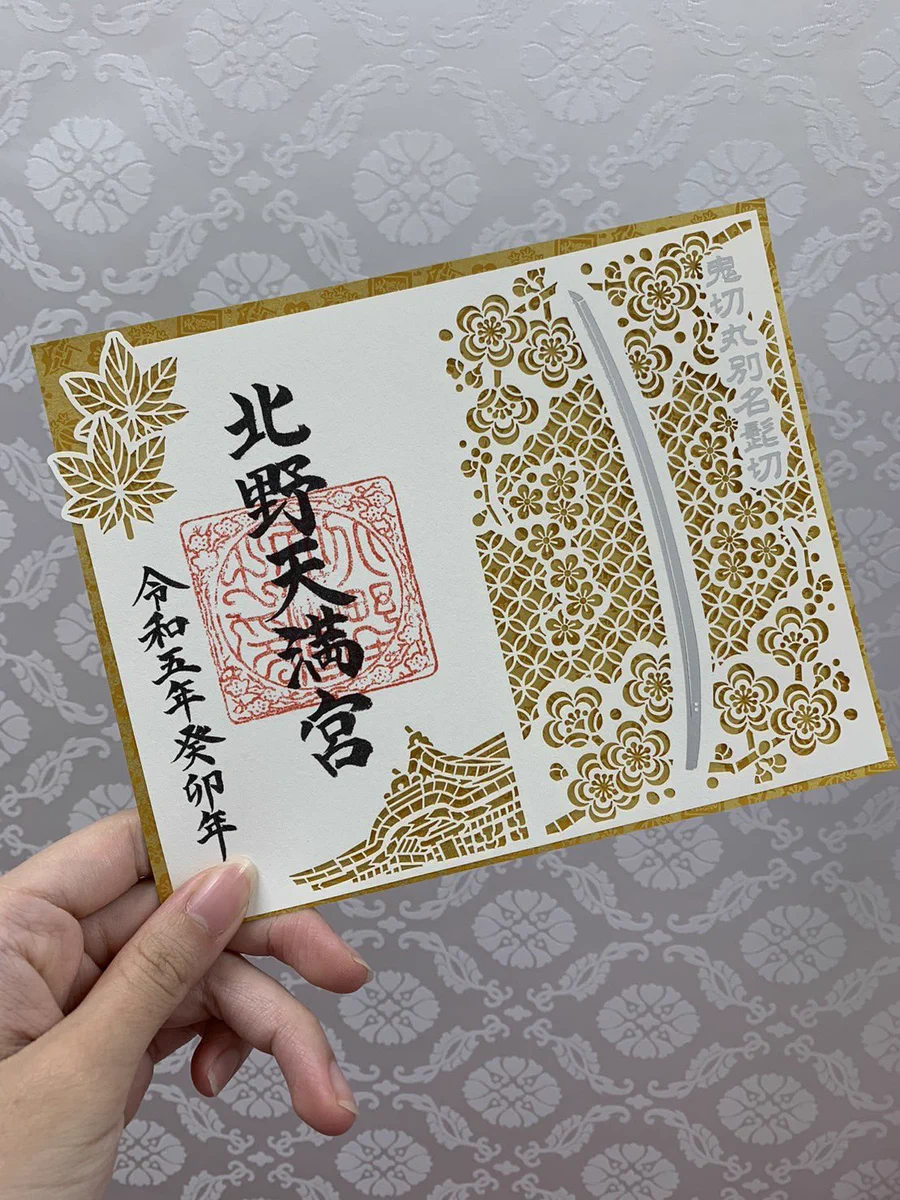 鬼切丸別名髭切
北野天満宮
令和五年癸卯年